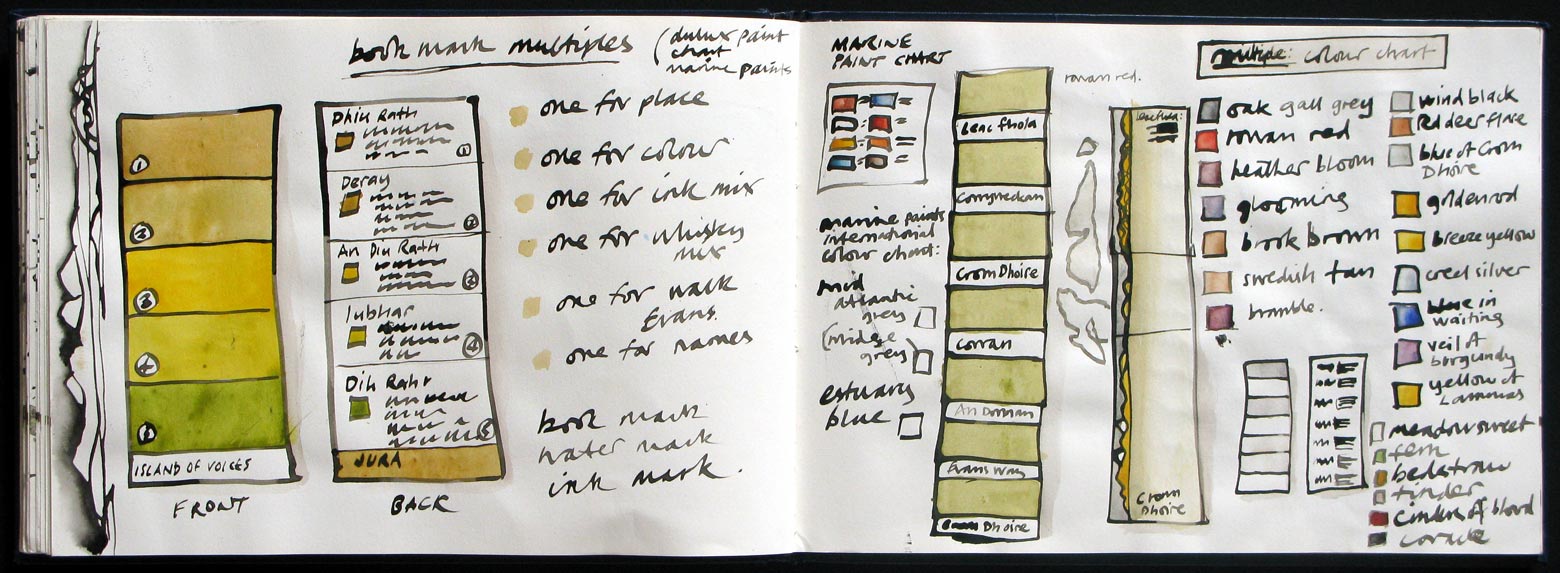 book mark multiples
(dulux paint
chart
marine paints
1
2
3
4
5
ISLAND OF VOICES
FRONT
Dhiu Rath
1
Deray
2
An Diu Rath
3
Iubhar
4
Dih Rahr
5
JURA
BACK
one for place
one for colour
one for ink mix
one for whiskey
mix
one for walk
Evans.
one for names
book mark
water mark
ink mark.
MARINE
PAINT CHART
marine paints
international
colour chart:
mid
atlantic
grey
(midge
grey)
estuary
blue
Leac Fhola
Corran
Crom Dhoire
An Doman
Evans way
Dhoire
rowan red.
Crom
Dhoire
multiple: colour chart
oak gall grey
rowan red
heather bloom
glooming
brook brown
swedish tan
bramble.
wind black
Red deer flare
blue of Crom
Dhoire
goldenrod
breeze yellow
creel silver
blue in
waiting
veil of
burgundy
yellow of
Lammas
meadowsweet
fern
bedstraw
tinder
cinders of blood
coracle